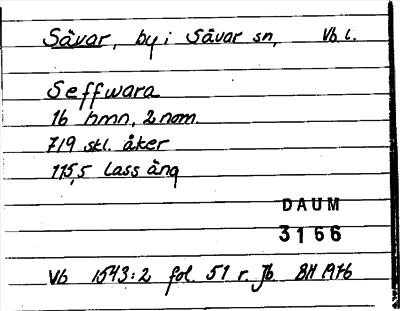 Sävar, by i Sävar sn, Vb l.
Seffwara
16 hmn, 2 nom.
719 skl. åker
115,5 lass äng
DAUM
3166
Vb 1543:2 fol. 51 r. Jb BH 1976